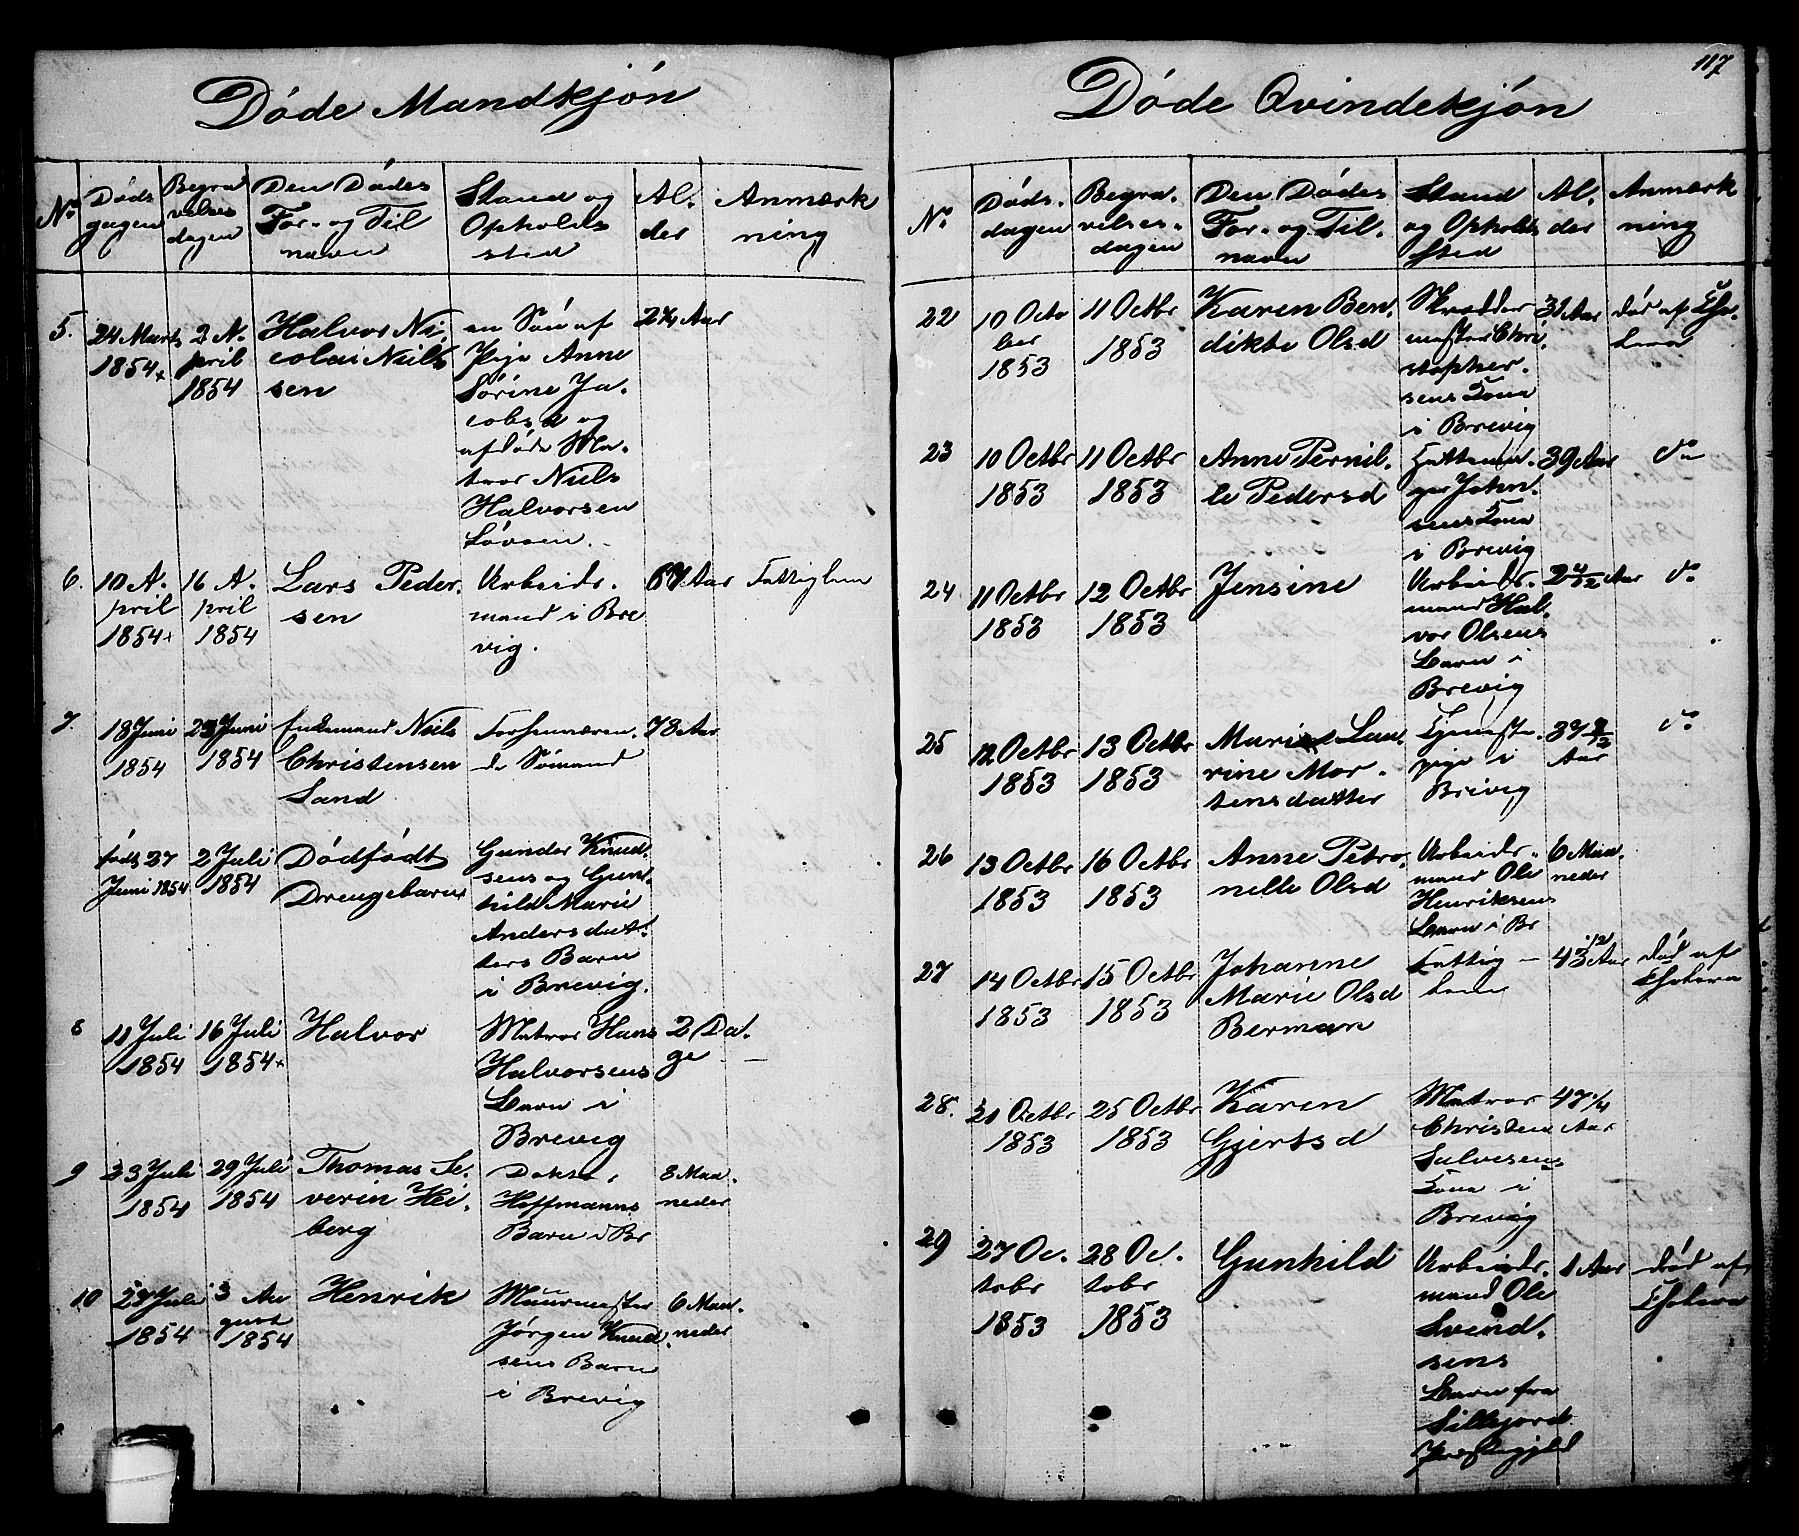 117
Døde Mandkjøn
No Døds gagen Begra velses dagen Den Dødes For- og Til navn Stand og Opholds sted Al- der Anmærk ning
5. 24 Marts 1854+ 2 A- pril 1854 Halvor Ni- colai Niels sen en Søn af Pige Anne Sørine Ja- cobsd og afdøde Ma- tros Niels Halvorsen Løvøen. 2¼ Aar
6. 10 A- pril 1854+ 16 A- pril 1854 Lars Peder- sen Arbeids- mand i Bre vig. 67 Aar Fattiglem
7. 18 Juni 1854 23 Juni 1854 Enkemand Niels Christensen Sand Forhenværen- de Sømand 78 Aar
født 27 Juni 1854 2 Juli 1854 Dødfødt Drengebarn Gunder Knud- sens og Gun- hild Marie Andersdat- ters Barn i Brevig.
8 11 Juli 1854 16 Juli 1854+ Halvor Matros Hans Halvorsens Barn i Brevig 2 Da- ge
9 23 Juli 1854 29 Juli 1854 Thomas Se- verin Hei- berg Doktor Hoffmanns Barn i Br 8 Maa- neder
10 Juli 1854 3 Au gust 1854 Henrik Muurmester Jørgen Knud- sens Barn i Brevig 6 Maa- neder
Døde Qvindekjøn
No Døds- dagen Begra- velses- dagen Den Dødes For- og Til- navn Stand og Opholds sted Al- der Anmærk ning
22 10 Octo ber 1853 11 Octbr 1853 Karen Ben- dikte Olsd Skrædder mester Chri- stopher- sens Kona i Brevig 31 Aar død af Cho- lera
23 10 Octbr 1853 11 Octbr 1853 Anne Pernil- le Pedersd John- sens Kona i Brevig 39 Aar do
24 11 Octbr 1853 12 Octbr 1853 Jensine Arbeids- mand Hal- vor Olsens Barn i Brevig 2 4/12 Aar do
25 12 Octbr 1853 13 Octbr 1853 Marie Lau- rine Mor- tensdatter Tjeneste- pige i Brevig 37 Aar do
26 13 Octbr 1853 16 Octbr 1853 Anne Petro- nelle Olsd Arbeids- mand Ole Henriksens Barn i Br 6 Maa- neder
27 14 Octbr 1853 15 Octbr 1853 Johanne Marie Olsd Berman Fattig- lem Aar død af Cholera
28. 21 Octbr 1853 25 Octbr 1853 Karen Gjertsd Matros Christen Salvesens Kona i Brevig 47 ¼ Aar
29 27 Oc- tobr 1853 28 Oc- tobr 1853 Gunhild Arbeids- mand Ole Svend- sens Barn fra Sillejord Præstegjeld 1 Aar død af Cholera